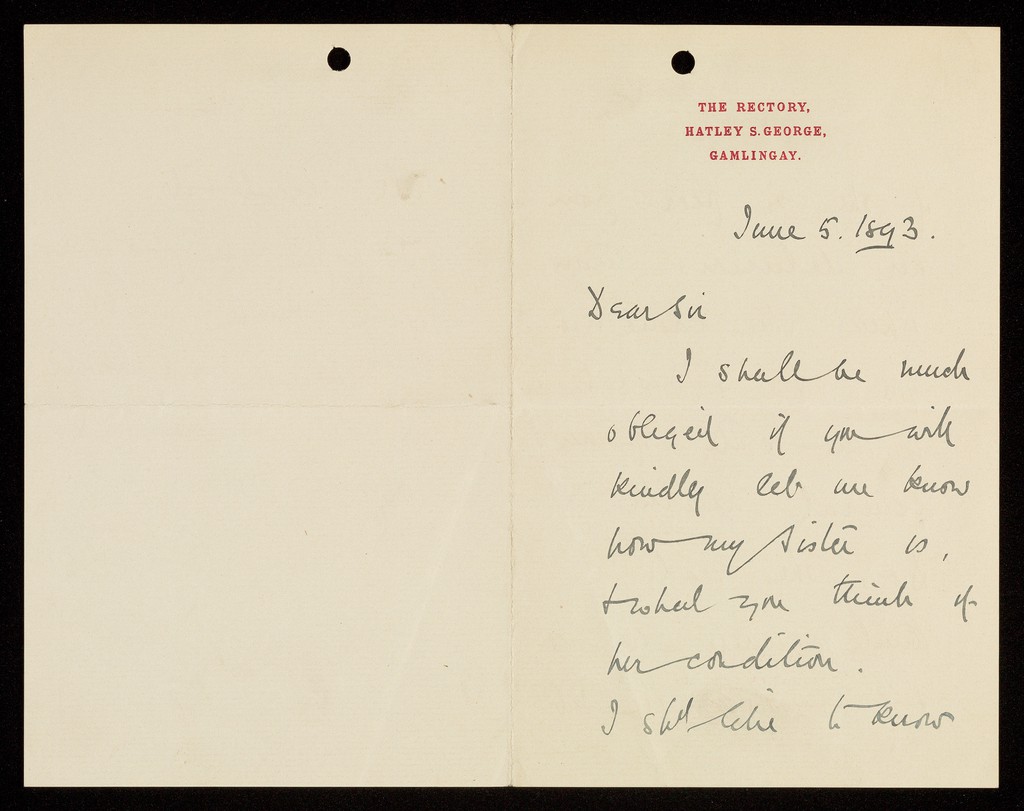 THE RECTORY,
HATLEY S. GEORGE,
GAMLINGAY.
June 5. 1893.
Dear Sir
I shall be much
obliged if you will
kindly let me know
how my sister is,
& what you think of
her condition.
I shd like to know